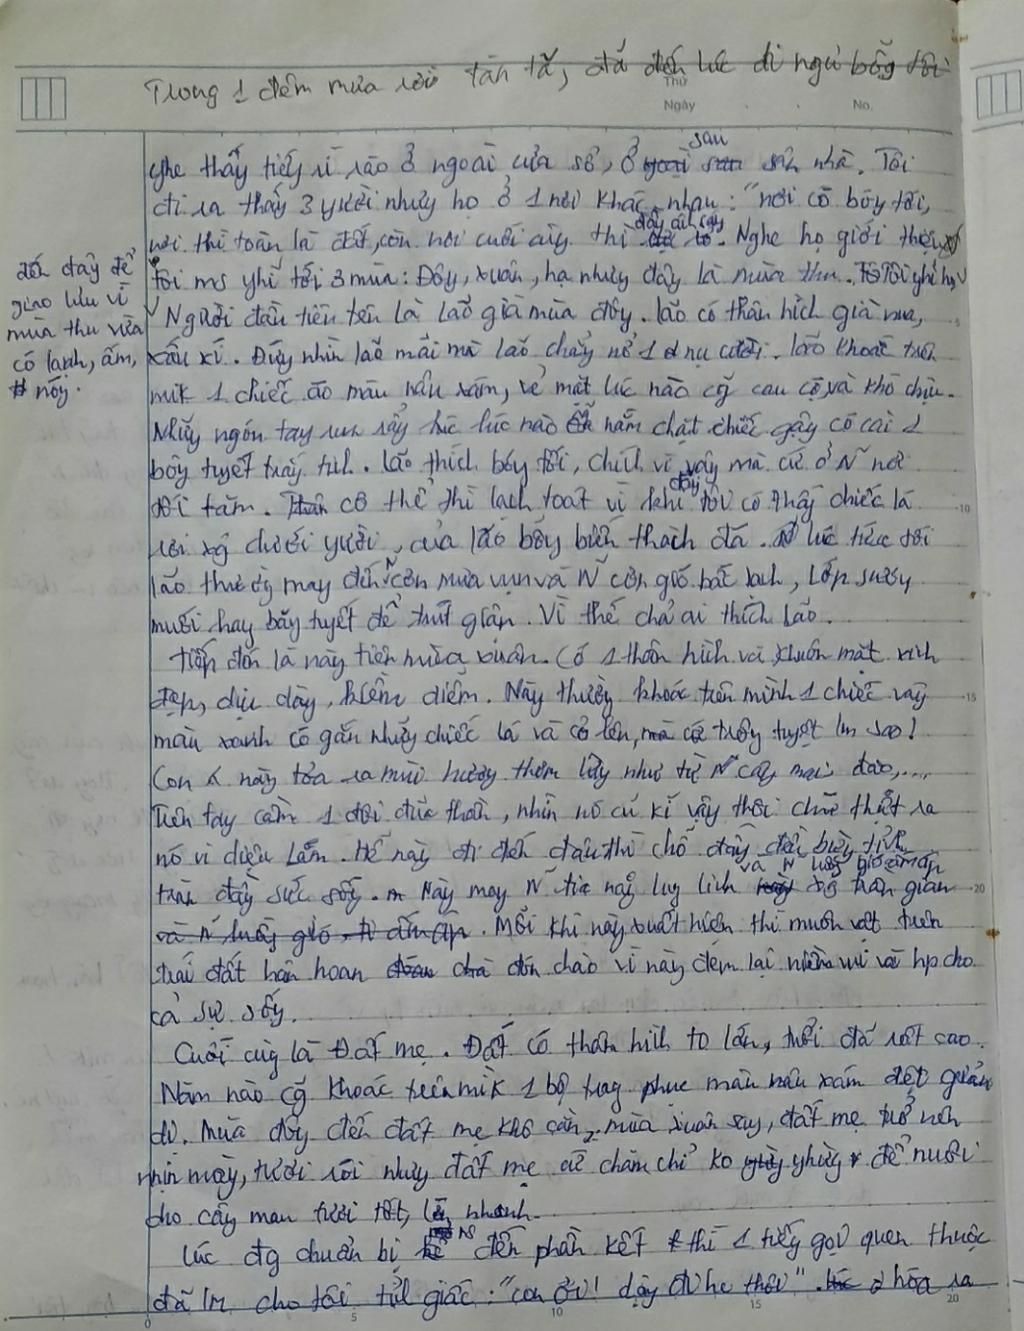 Trong 1 đêm mưa rơi tầm tã, đã đến lúc đi ngủ bỗng tôi
Thứ
Ngày No.
sau
nghe thấy tiếng rì rào ở ngoài cửa sổ, ở sân nhà. Tôi
đi ra thấy 3 người nhưng họ ở 1 nơi khác nhau: "nơi có bóng tối,
đầy cây
nơi thì toàn là đất, còn nơi cuối cùng thì. Nghe họ giới thiệu
đến đây để
giao lưu vì
mùa thu vừa
có lạnh, ấm,
nóng.
tôi ms nghĩ tới 3 mùa: Đông, xuân, hạ nhưng đây là mùa thu. Tôi nghĩ họ
Người đầu tiên tên là lão già mùa đông. lão có thân hình già nua,
xấu xí. Đứng nhìn lão mãi mà lão chẳng nở 1 nụ cười. lão khoác trên
mik 1 chiếc áo màu nâu xám, vẻ mặt lúc nào cg cau có và khó chịu.
Những ngón tay run rẩy lúc nào nắm chặt chiếc gậy có cài 1
bông tuyết trắng tinh. lão thích bóng tối, chính vì vậy mà cứ ở N nơi
đây
tối tăm. cơ thể thì lạnh toát vì khi tôi có thấy chiếc lá
rơi xg dưới người của lão bỗng biến thành đá. lúc tức tối
lão thường mang đến N cơn mưa vụn và N cơn gió bấc lạnh, lớp sương
muối hay băng tuyết để trút giận. Vì thế chả ai thích lão.
tiếp đến là nàng tiên mùa xuân. Có 1 thân hình và khuôn mặt xinh
đẹp, dịu dàng, hiền diềm. Nàng thường khoác trên mình 1 chiếc váy
màu xanh có gắn những chiếc lá và cỏ lên, trông tuyệt lm sao!
Còn nàng tỏa ra mùi hương thơm lừng như từ N cây mai đào,...
Trên tay cầm 1 đôi đũa thần, nhìn nó cũ kĩ vậy thôi chứ thật ra
nó vi diệu lắm. Hễ nàng đi đến đâu thì chỗ đấy đều bừng tỉnh
và N luồng gió ấm áp
tràn đầy sức sống. Nàng mang N tia nắng lung linh xg trần gian
và N luồng gió ấm áp. Mỗi khi nàng xuất hiện thì muôn vật trên
trái đất hân hoan đón chào vì nàng đem lại niềm vui và hp cho
cả sự sống.
Cuối cùng là Đất mẹ. Đất có thân hình to lớn, tuổi đã rất cao.
Năm nào cg khoác trên mik 1 bộ trang phục màu nâu xám đẹt giản
dị. Mùa đông đến đất mẹ khô cằn, mùa xuân sang, đất mẹ trở nên
mịn màng, tươi rói nhưng đất mẹ chăm chỉ ko ngừng để nuôi
cho cây man tươi tốt, nhanh.
Lúc đg chuẩn bị đến phần kết thì 1 tiếng gọi quen thuộc
đã lm cho tôi tỉnh giấc: "con ơi! dậy đi học thôi" hóa ra
5 10 15 20
0 5 10 15 20